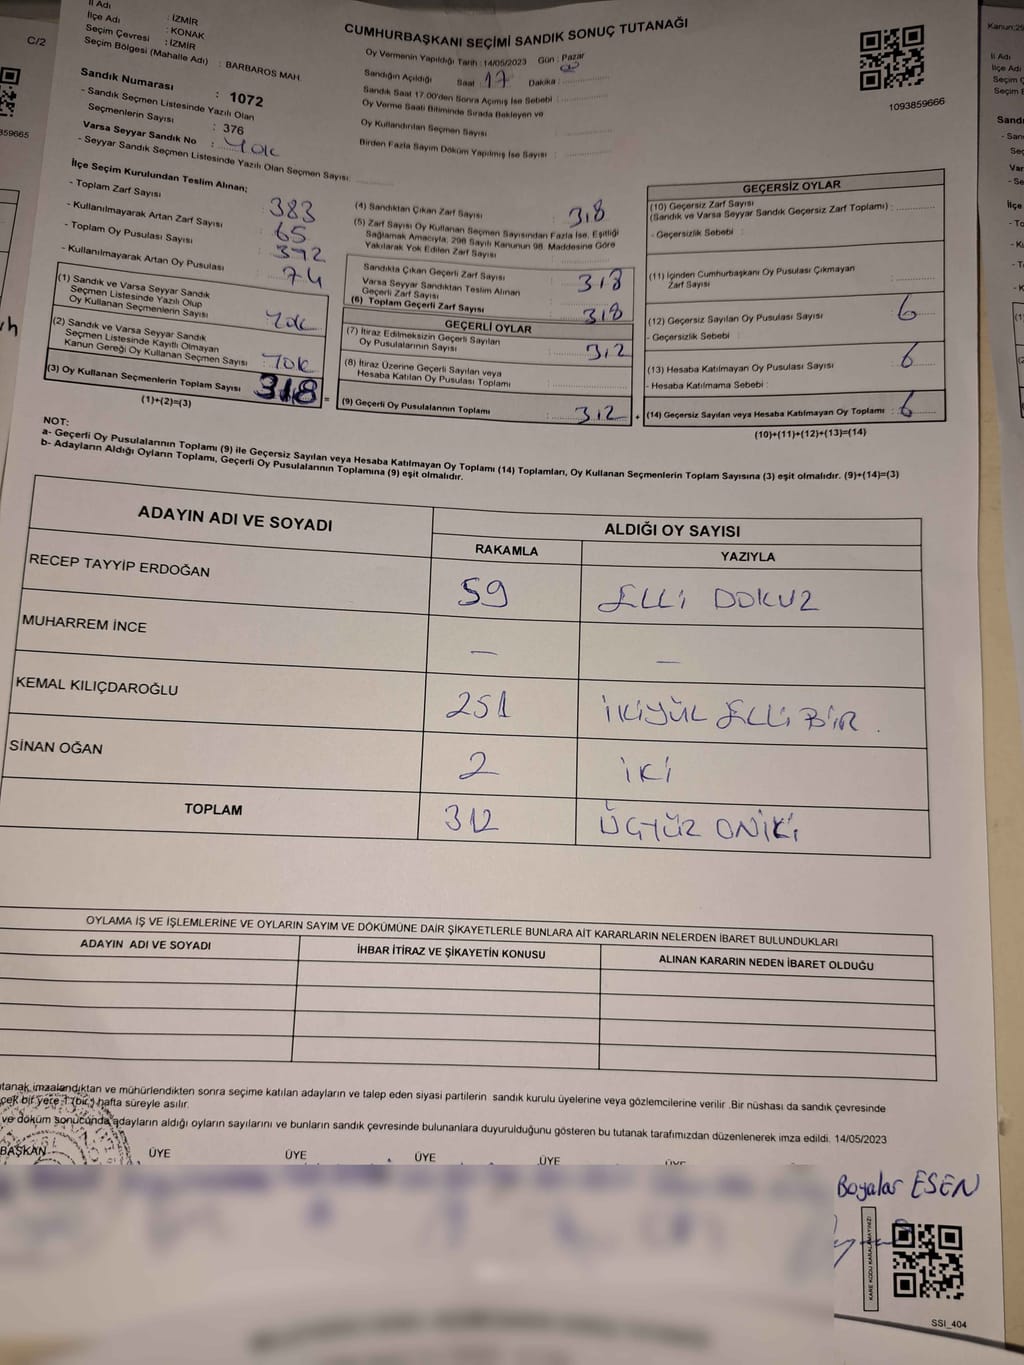 İl Adı : İZMİR
İlçe Adı : KONAK
Seçim Çevresi : İZMİR
Seçim Bölgesi (Mahalle Adı) : BARBAROS MAH.
Sandık Numarası : 1072
- Sandık Seçmen Listesinde Yazılı Olan
Seçmenlerin Sayısı : 376
Varsa Seyyar Sandık No : YOK
- Seyyar Sandık Seçmen Listesinde Yazılı Olan Seçmen Sayısı:
CUMHURBAŞKANI SEÇİMİ SANDIK SONUÇ TUTANAĞI
Oy Vermenin Yapıldığı Tarih : 14/05/2023 Gün : Pazar
Sandığın Açıldığı Saat : 17 Dakika :
Sandık Saat 17.00'den Sonra Açmış İse Sebebi :
Oy Verme Saati Bitiminde Sırada Bekleyen ve
Oy Kullandırılan Seçmen Sayısı :
Birden Fazla Sayım Döküm Yapılmış İse Sayısı :
1093859666
İlçe Seçim Kurulundan Teslim Alınan;
- Toplam Zarf Sayısı : 383
- Kullanılmayarak Artan Zarf Sayısı : 65
- Toplam Oy Pusulası Sayısı : 392
- Kullanılmayarak Artan Oy Pusulası : 74
(1) Sandık ve Varsa Seyyar Sandık
Seçmen Listesinde Yazılı Olup
Oy Kullanan Seçmenlerin Sayısı : YOK
(2) Sandık ve Varsa Seyyar Sandık
Seçmen Listesinde Kayıtlı Olmayan
Kanun Gereği Oy Kullanan Seçmen Sayısı : YOK
(3) Oy Kullanan Seçmenlerin Toplam Sayısı : 318 =
(1)+(2)=(3)
(4) Sandıktan Çıkan Zarf Sayısı : 318
(5) Zarf Sayısı Oy Kullanan Seçmen Sayısından Fazla İse, Eşitliği
Sağlamak Amacıyla, 298 Sayılı Kanunun 98. Maddesine Göre
Yakılarak Yok Edilen Zarf Sayısı :
Sandıkta Çıkan Geçerli Zarf Sayısı : 318
Varsa Seyyar Sandıktan Teslim Alınan
Geçerli Zarf Sayısı
(6) Toplam Geçerli Zarf Sayısı : 318
GEÇERLİ OYLAR
(7) İtiraz Edilmeksizin Geçerli Sayılan
Oy Pusulalarının Sayısı : 312
(8) İtiraz Üzerine Geçerli Sayılan veya
Hesaba Katılan Oy Pusulası Toplamı :
(9) Geçerli Oy Pusulalarının Toplamı : 312 +
GEÇERSİZ OYLAR
(10) Geçersiz Zarf Sayısı
(Sandık ve Varsa Seyyar Sandık Geçersiz Zarf Toplamı) :
- Geçersizlik Sebebi :
(11) İçinden Cumhurbaşkanı Oy Pusulası Çıkmayan
Zarf Sayısı :
(12) Geçersiz Sayılan Oy Pusulası Sayısı : 6
- Geçersizlik Sebebi :
(13) Hesaba Katılmayan Oy Pusulası Sayısı : 6
- Hesaba Katılmama Sebebi :
(14) Geçersiz Sayılan veya Hesaba Katılmayan Oy Toplamı : 6
(10)+(11)+(12)+(13)=(14)
NOT:
a- Geçerli Oy Pusulalarının Toplamı (9) ile Geçersiz Sayılan veya Hesaba Katılmayan Oy Toplamı (14) Toplamları, Oy Kullanan Seçmenlerin Toplam Sayısına (3) eşit olmalıdır. (9)+(14)=(3)
b- Adayların Aldığı Oyların Toplamı, Geçerli Oy Pusulalarının Toplamına (9) eşit olmalıdır.
ADAYIN ADI VE SOYADI
ALDIĞI OY SAYISI
RAKAMLA YAZIYLA
RECEP TAYYİP ERDOĞAN 59 ELLİ DOKUZ
MUHARREM İNCE — —
KEMAL KILIÇDAROĞLU 251 İKİYÜZ ELLİ BİR.
SİNAN OĞAN 2 İKİ
TOPLAM 312 ÜÇYÜZ ONİKİ
OYLAMA İŞ VE İŞLEMLERİNE VE OYLARIN SAYIM VE DÖKÜMÜNE DAİR ŞİKAYETLERLE BUNLARA AİT KARARLARIN NELERDEN İBARET BULUNDUKLARI
ADAYIN ADI VE SOYADI İHBAR İTİRAZ VE ŞİKAYETİN KONUSU ALINAN KARARIN NEDEN İBARET OLDUĞU
tanak imzalandıktan ve mühürlendikten sonra seçime katılan adayların ve talep eden siyasi partilerin sandık kurulu üyelerine veya gözlemcilerine verilir .Bir nüshası da sandık çevresinde
çek bir yere 1 (bir) hafta süreyle asılır.
ve döküm sonucunda adayların aldığı oyların sayılarını ve bunların sandık çevresinde bulunanlara duyurulduğunu gösteren bu tutanak tarafımızdan düzenlenerek imza edildi. 14/05/2023
BAŞKAN ÜYE ÜYE ÜYE ÜYE ÜYE
Boyalar ESEN
SSI_404
C/2
359665